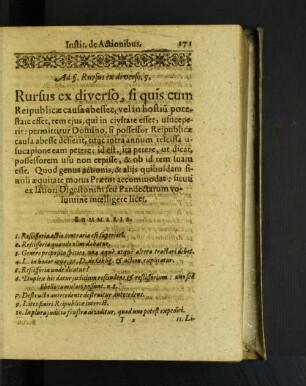 Instit. de Actionibus. 171
Ad §. Rursus ex diverso, 5.
Rursus ex diverso, si quis cum
Reipublicæ causa abesset, vel in hostiũ pote-
state esset, rem ejus, qui in civitate esset, usuceperit:
permittitur Domino, si possessor Reipublicæ
causa abesse desierit, tunc intra annum rescissa u-
sucapione eam petere: id est, ita petere, ut dicat,
possessorem usu non cepisse, & ob id rem suam
esse. Quod genus actionis, & aliis quibusdam si-
mili æquitate motus Prætor accommodat: sicuti
ex latiori Digestorum seu Pandectarum vo-
lumine intelligere licet.
SUMMARIA.
1. Rescissoria actio contraria est superiori.
2. Rescissoria quando olim dabatur.
3. Genere proposito
4. L. in honorariis, 35. D. de Oblig. & action. explicatur.
5. Rescissoria unde dicatur?
6. Duplex hic datur judicium rescindens & rescissorium: uno
libello cumulari possunt. n. 8.
7. Destructo antecedente destruitur
9. Lites finiri Reipublicæ interest.
10. In plura judicia frustra dividitur, quod uno potest expediri.
T 2 11. Li-